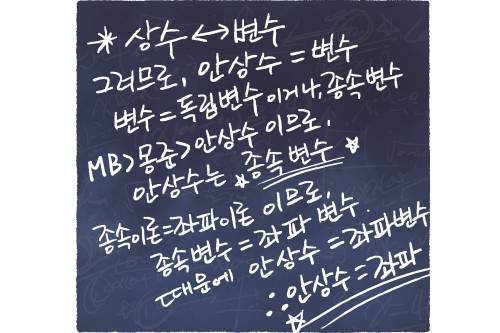 * 상수 ↔ 변수
그러므로, 안상수 = 변수
변수 = 독립변수 이거나, 종속변수
MB > 몽준 > 안상수 이므로,
안상수는 ☆종속변수☆
종속이론=좌파이론 이므로,
종속변수 = 좌파 변수.
때문에 안상수 = 좌파변수
∴ 안상수 = 좌파